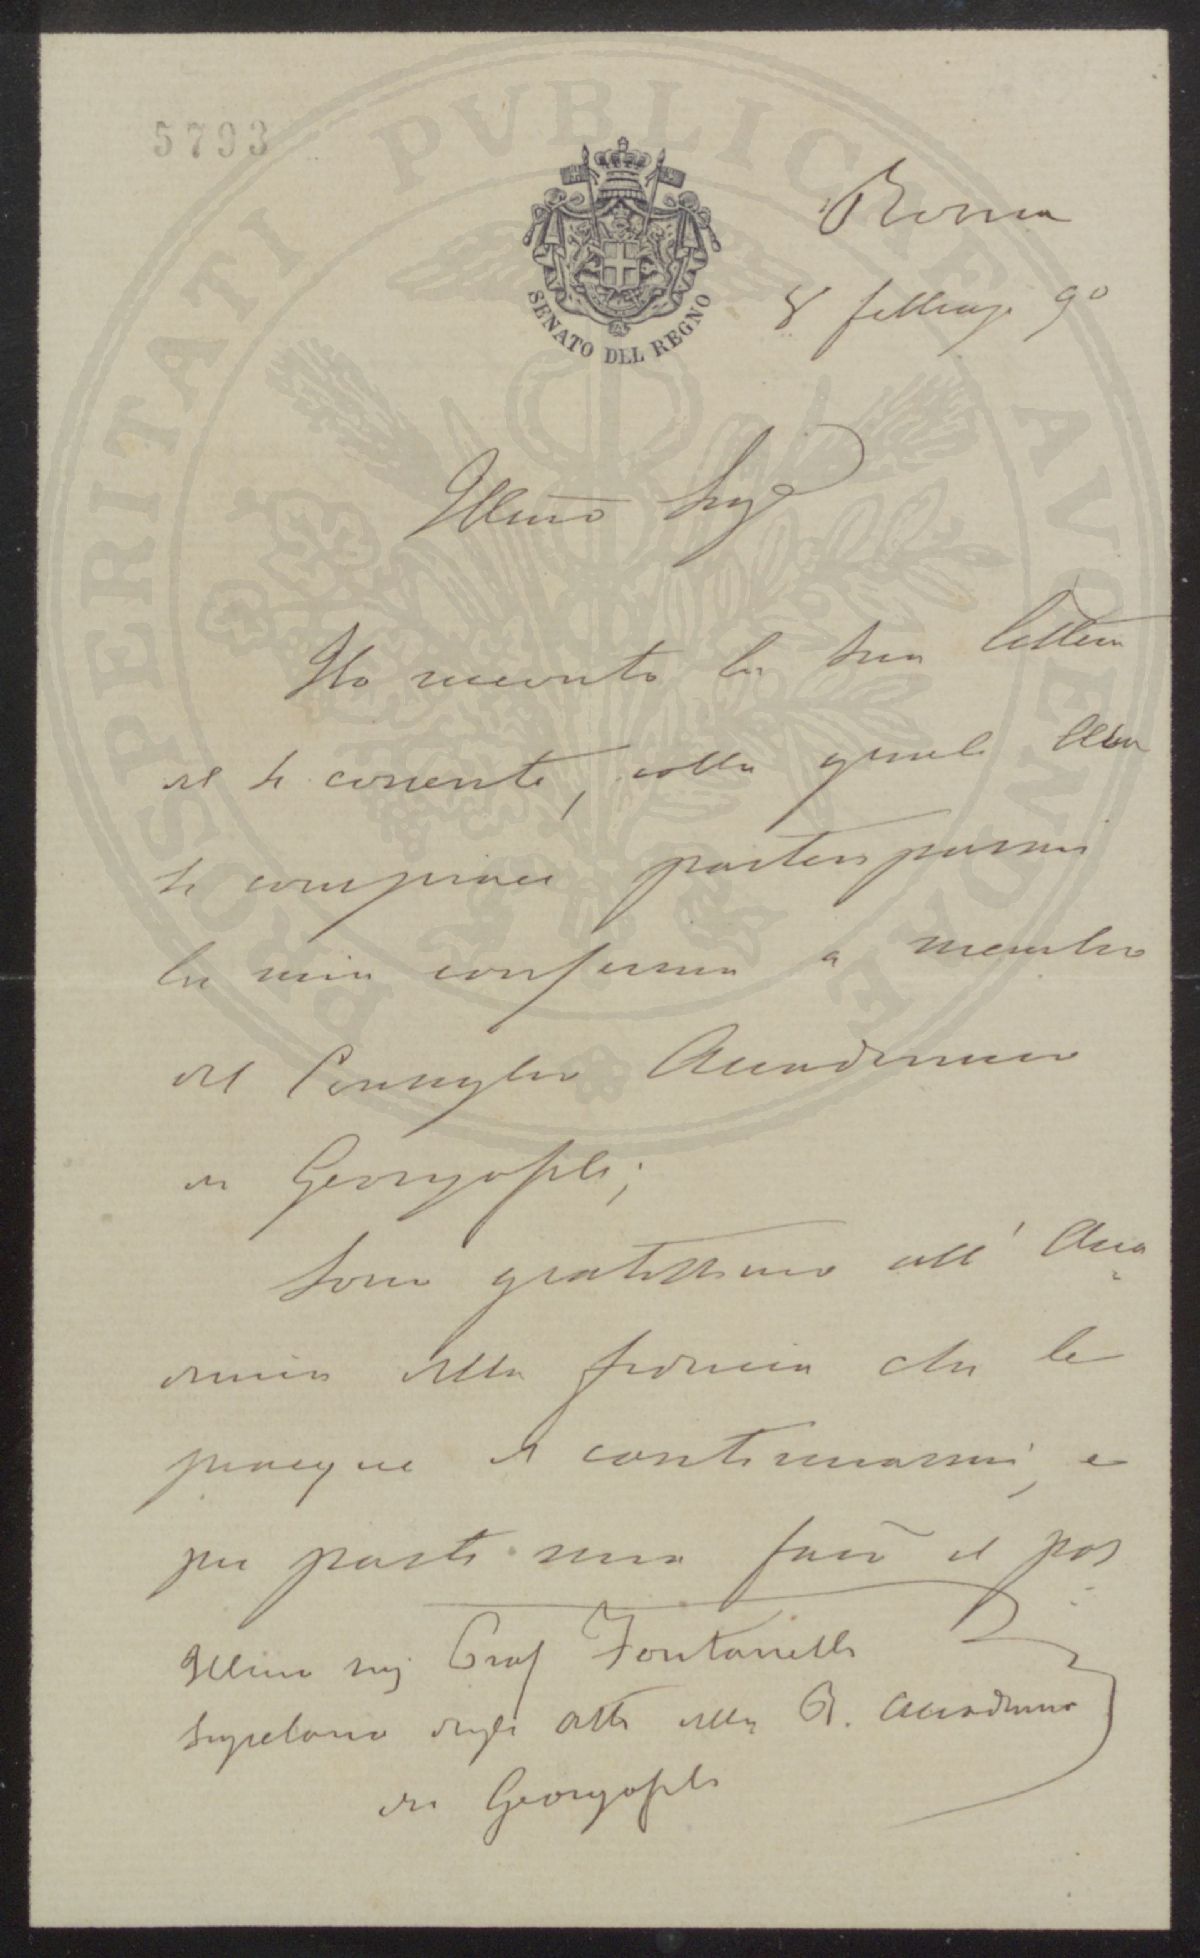 5793
PROSPERITATI PVBLICAE AVGENDAE
SENATO DEL REGNO
Roma
8 febbraio 90
Illmo Sigr
Ho ricevuto la sua lettera
del corrente, colla quale Ella
si compiace parteciparmi
la mia conferma a membro
del Consiglio Accademico
dei Georgofili;
Sono gratissimo all' Acca
demia della fiducia che le
piacque di continuarmi, e
per parte mia farò il pos
Illmo sig Prof Fontanelli
Segretario degli Atti della R. Accademia
dei Georgofili